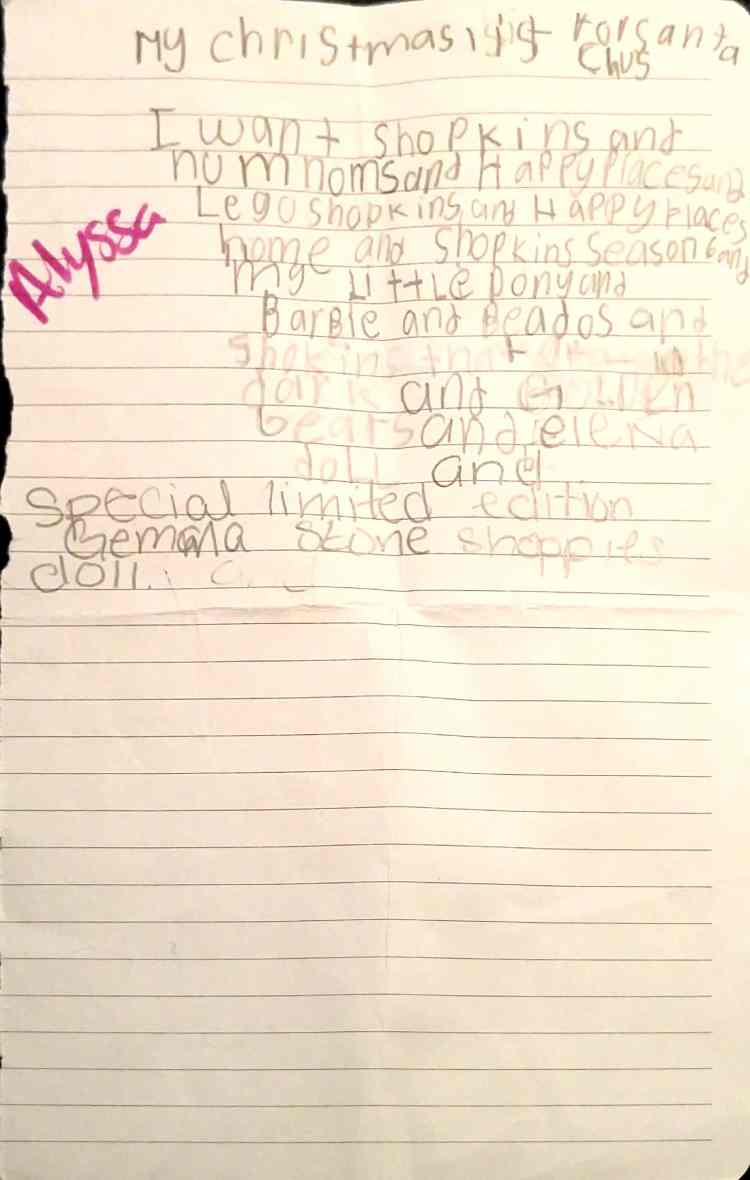 My christmas list For santa
Chus
I want shopkins and
num noms and Happy Places and
Lego shopkins and Happy Places
home and shopkins season 6 and
my Little pony and
Barbie and Beados and
Shokins that in the
dark and Golden
bears and elena
doll and
Special limited edition
Gemma Stone shoppies
doll.
Alyssa